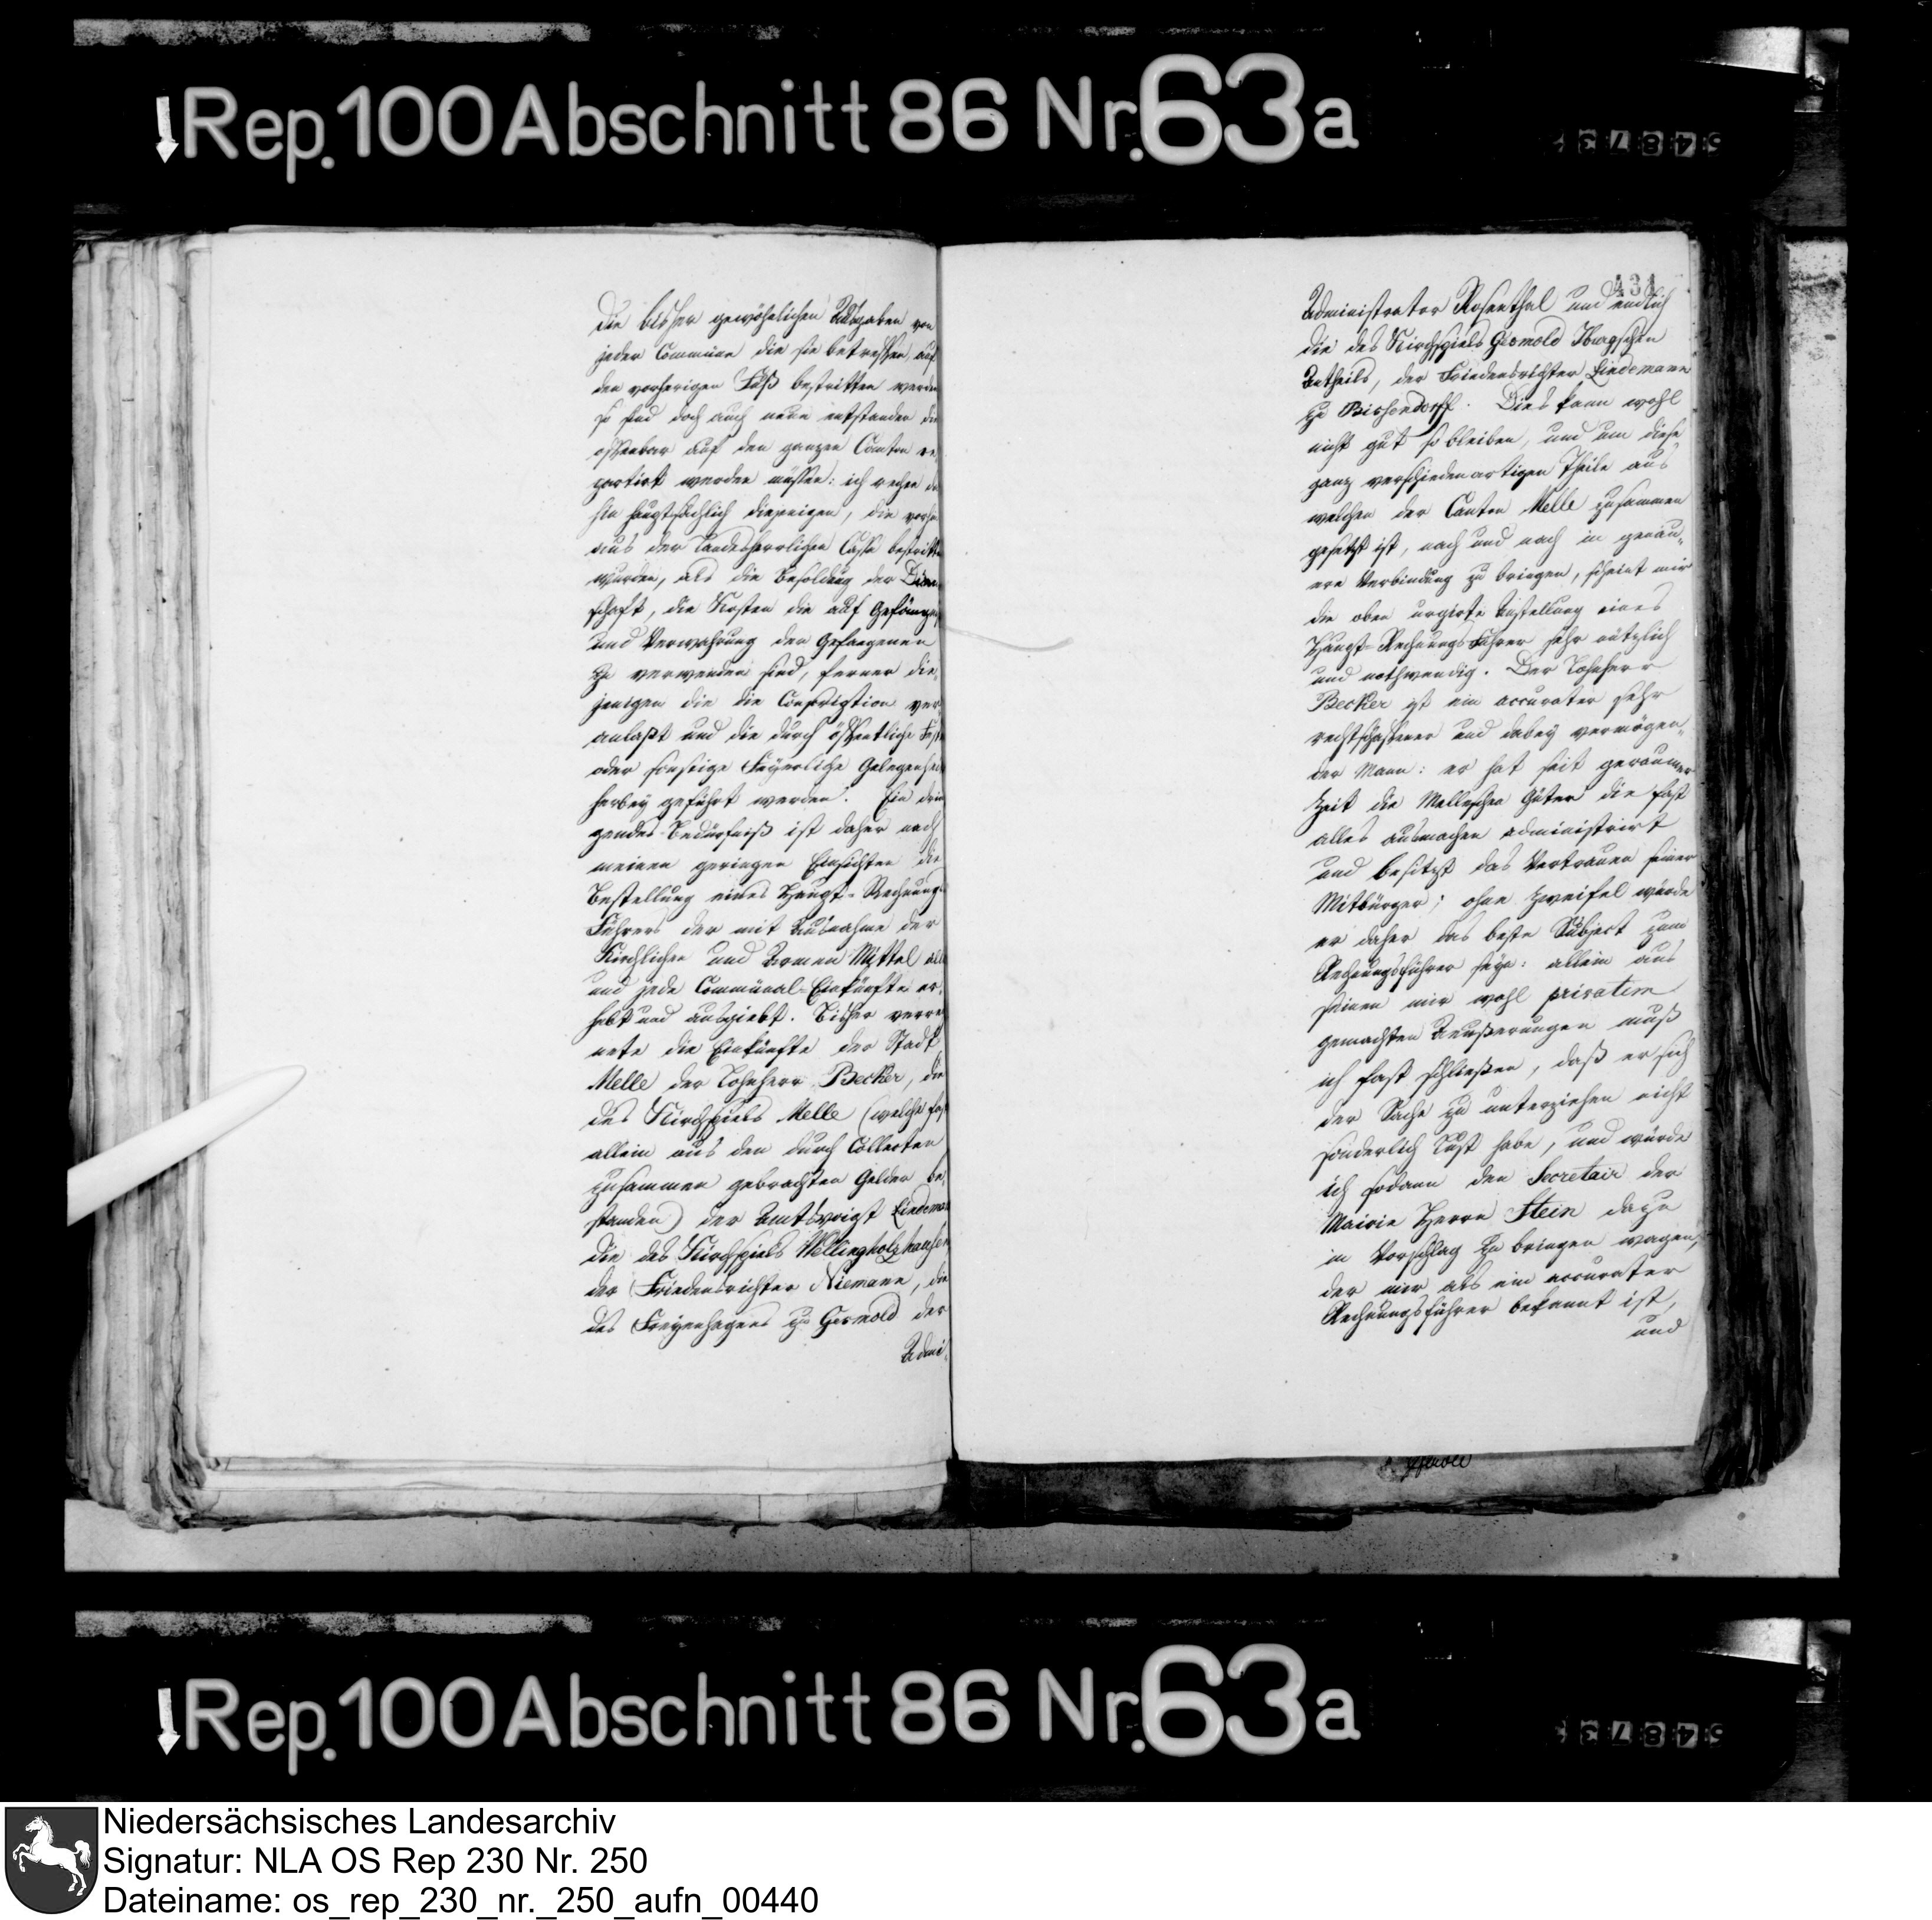 Rep. 100 Abschnitt 86 Nr. 63a
Die bisher gewöhnlichen Ausgaben von
jeder Commüne die sie betreffen, auf
den vorherigen Fuß bestritten werden
so sind doch auch neue entstanden die
offenbar auf den ganzen Canton re
partirt werden müssen: ich rechne da
hin hauptsächlich diejenigen, die vorhin
aus der Landesherrlichen Casse bestritten
wurden, als die Besoldung der Diener
schaft, die Kosten die auf Gefängniß
und Verwahrung der Gefangenen
zu verwenden sind, ferner die
jenigen die die Conscription ver
anlaßt und die durch öffentliche Feste
oder sonstige Feyerliche Gelegenheit
herbey geführt werden. Ein drin
gendes Bedürfniß ist daher nach
meinen geringen Einsichten die
Bestellung eines Haupt-Rechnungs
Führers der mit Ausnahme der
Kirchlichen und Armen Mittel all
und jede Commünal-Einkünfte er,
hebt und ausgiebt. Bisher verrech
nete die Einkünfte der Stadt
Melle der Lohnherr Becker, die
des Kirchspiels Melle (welche fast
allein aus den durch Collecten
zusammen gebrachten Gelder be,
standen) der Amtsvoigt Lindemann
die des Kirchspiels Wellingholzhausen
der Friedensrichter Niemann, die
des Freyenhagens zu Gesmold der
Admi,
431
Administrator Rosenthal und endlich
die des Kirchspiels Gesmold Iburgschen
Antheils, der Friedensrichter Lindemann
zu Bissendorff. Dies kann wohl
nicht gut so bleiben, und um diese
ganz verschiedenartigen Theile aus
welchen der Canton Melle zusammen
gesetzt ist, nach und nach in genau„
ere Verbindung zu bringen, scheint mir
die oben urgirte Anstellung eines
Haupt-Rechnungs Führer sehr nützlich
und nothwendig. Der Lohnherr
Becker ist ein accurater sehr
rechtschaffener und dabey vermögen„
der Mann: er hat seit geraumer
Zeit die Melleschen Güter die fast
alles ausmachen administrirt
und besitzt das Vertrauen seiner
Mitbürger; ohne Zweifel würde
er daher das beste Subject zum
Rechnungsführer seyn: allein aus
seinen mir wohl privatim
gemachten Aeußerungen muß
ich fast schließen, daß er sich
der Sache zu unterziehen nicht
sonderlich Lust habe, und würde
ich sodann den Secretair der
Mairie Herrn Stein dazu
in Vorschlag zu bringen wagen,
der mir als ein accurater
Rechnungsführer bekannt ist,
und
Rep. 100 Abschnitt 86 Nr. 63a
Niedersächsisches Landesarchiv
Signatur: NLA OS Rep 230 Nr. 250
Dateiname: os_rep_230_nr._250_aufn_00440